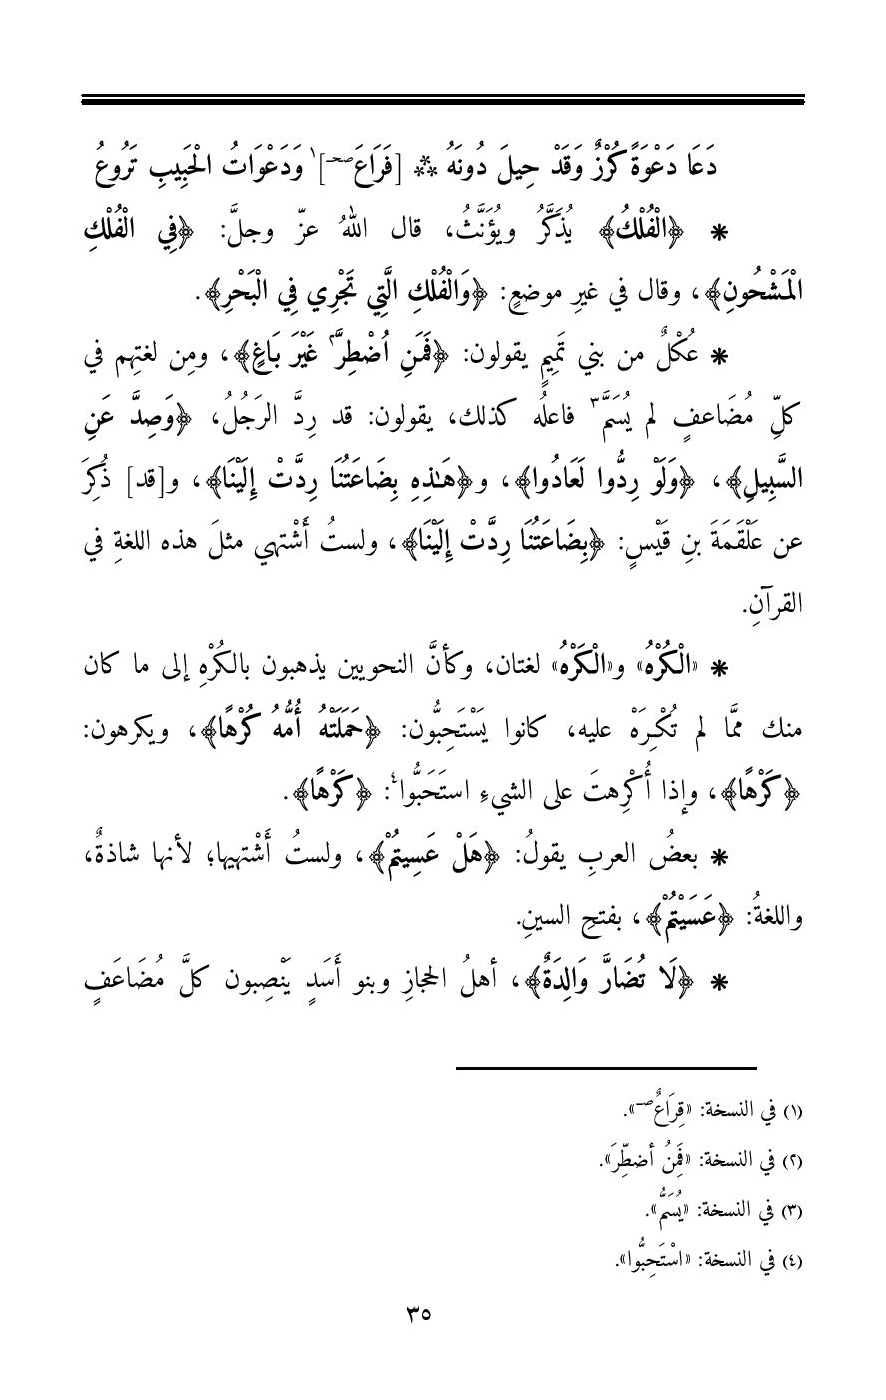 دَعَا دَعْوَةً كُرْزٌ وَقَدْ حِيلَ دُونَهُ ⁂ [فَرَاعَصحـ]١ وَدَعْوَاتُ الْحَبِيبِ تَرُوعُ
* ﴿الْفُلْكُ﴾ يُذَكَّرُ ويُؤَنَّثُ، قال اللهُ عزّ وجلَّ: ﴿فِي الْفُلْكِ
الْمَشْحُونِ﴾، وقال في غيرِ موضعٍ: ﴿وَالْفُلْكِ الَّتِي تَجْرِي فِي الْبَحْرِ﴾.
* عُكْلٌ من بني تَمِيمٍ يقولون: ﴿فَمَنِ اُضْطِرَّ٢ غَيْرَ بَاغٍ﴾، ومِن لغتِهم في
كلِّ مُضَاعفٍ لم يُسَمَّ٣ فاعلُه كذلك، يقولون: قد رِدَّ الرَجُلُ، ﴿وَصِدَّ عَنِ
السَّبِيلِ﴾، ﴿وَلَوْ رِدُّوا لَعَادُوا﴾، و﴿هَـٰذِهِ بِضَاعَتُنَا رِدَّتْ إِلَيْنَا﴾، و[قد] ذُكِرَ
عن عَلْقَمَةَ بنِ قَيْسٍ: ﴿بِضَاعَتُنَا رِدَّتْ إِلَيْنَا﴾، ولستُ أَشْتهي مثلَ هذه اللغةِ في
القرآنِ.
* «الْكُرْهُ» و«الْكَرْهُ» لغتان، وكأنَّ النحويين يذهبون بالكُرْهِ إلى ما كان
منك ممَّا لم تُكْرَهْ عليه، كانوا يَسْتَحِبُّون: ﴿حَمَلَتْهُ أُمُّهُ كُرْهًا﴾، ويكرهون:
﴿كَرْهًا﴾، وإذا أُكْرِهتَ على الشيءِ استَحَبُّوا٤: ﴿كَرْهًا﴾.
* بعضُ العربِ يقولُ: ﴿هَلْ عَسِيتُمْ﴾، ولستُ أَشْتهيها؛ لأنها شاذةٌ،
واللغةُ: ﴿عَسَيْتُمْ﴾، بفتحِ السينِ.
* ﴿لَا تُضَارَّ وَالِدَةٌ﴾، أهلُ الحجازِ وبنو أَسَدٍ يَنْصِبون كلَّ مُضَاعَفٍ
(١) في النسخة: «قِرَاعٌصـ».
(٢) في النسخة: «فَمنُ أضطِّرَ».
(٣) في النسخة: «يُسَمُّ».
(٤) في النسخة: «اسْتَحِبُّوا».
٣٥